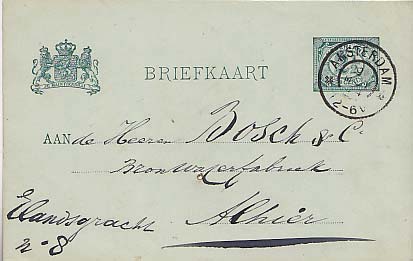 BRIEFKAART
AMSTERDAM
AAN de Heeren Bosch & C.
Bronwaterfabriek
Elandsgracht Alhier
no 8